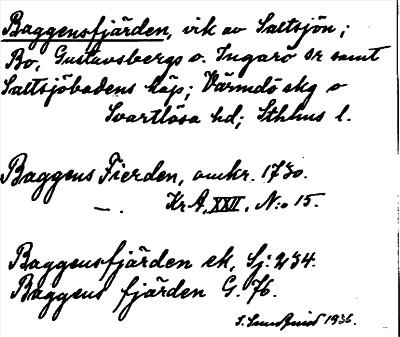 Baggensfjärden, vik av Saltsjön;
Bo, Gustavsbergs o. Ingarö sr samt
Saltsjöbadens köp; Värmdö skg o
Svartlösa hd; Sthlms l.
Baggens Fierden, omkr. 1730.
—. Kr A, XXII, N:o 15.
Baggensfjärden ek, Sj: 234.
Baggens fjärden G. 76.
1936.